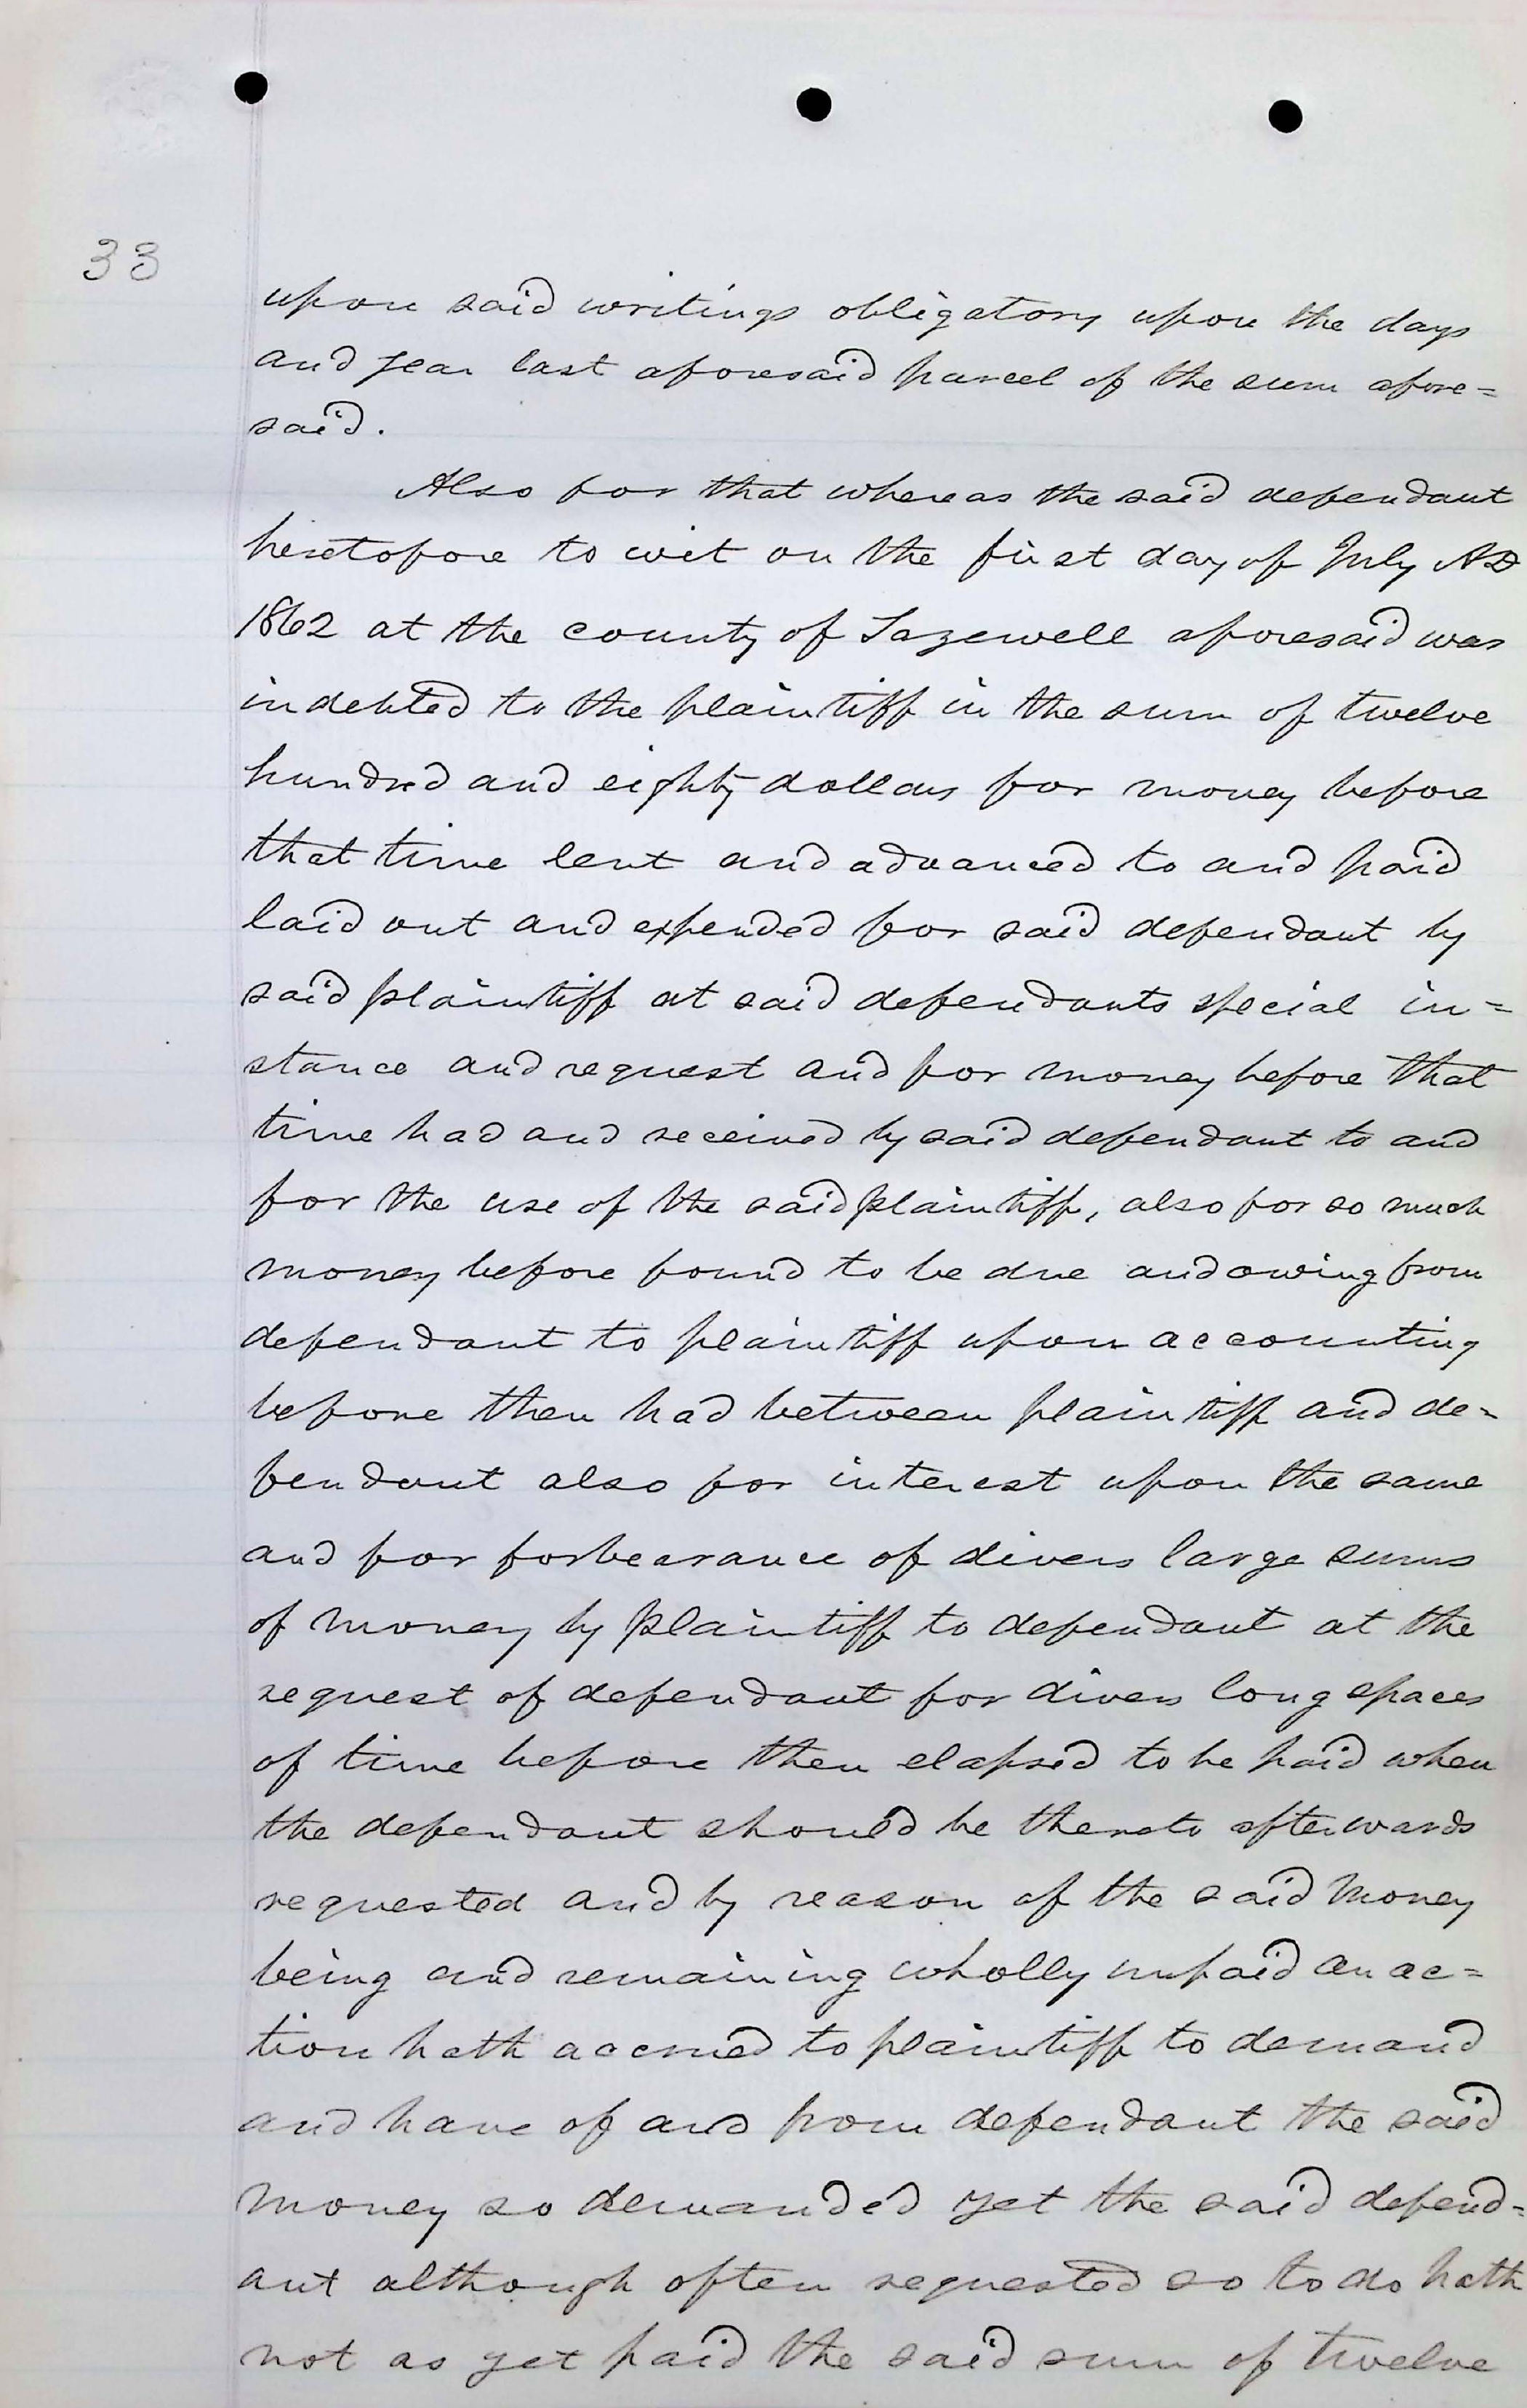 33
upon said writings obligatory upon the days
and year last aforesaid parcel of the sum afore=
said.
Also for that whereas the said defendant
heretofore to wit on the first day of July AD
1862 at the county of Tazewell aforesaid was
indebted to the plaintiff in the sum of twelve
hundred and eighty dollars for money before
that time lent and advanced to and paid
laid out and expended for said defendant by
said plaintiff at said defendants special in=
stance and request and for money before that
time had and received by said defendant to and
for the use of the said plaintiff, also for so much
money before found to be due and owing from
defendant to plaintiff upon accounting
before then had between plaintiff and de=
fendant also for interest upon the same
and for forbearance of divers large sums
of money by plaintiff to defendant at the
request of defendant for divers long spaces
of time before then elapsed to be paid when
the defendant should be thereto afterwards
requested and by reason of the said money
being and remaining wholly unpaid an ac=
tion hath accrued to plaintiff to demand
and have of and from defendant the said
money so demanded yet the said defend=
ant although often requested so to do hath
not as yet paid the said sum of twelve